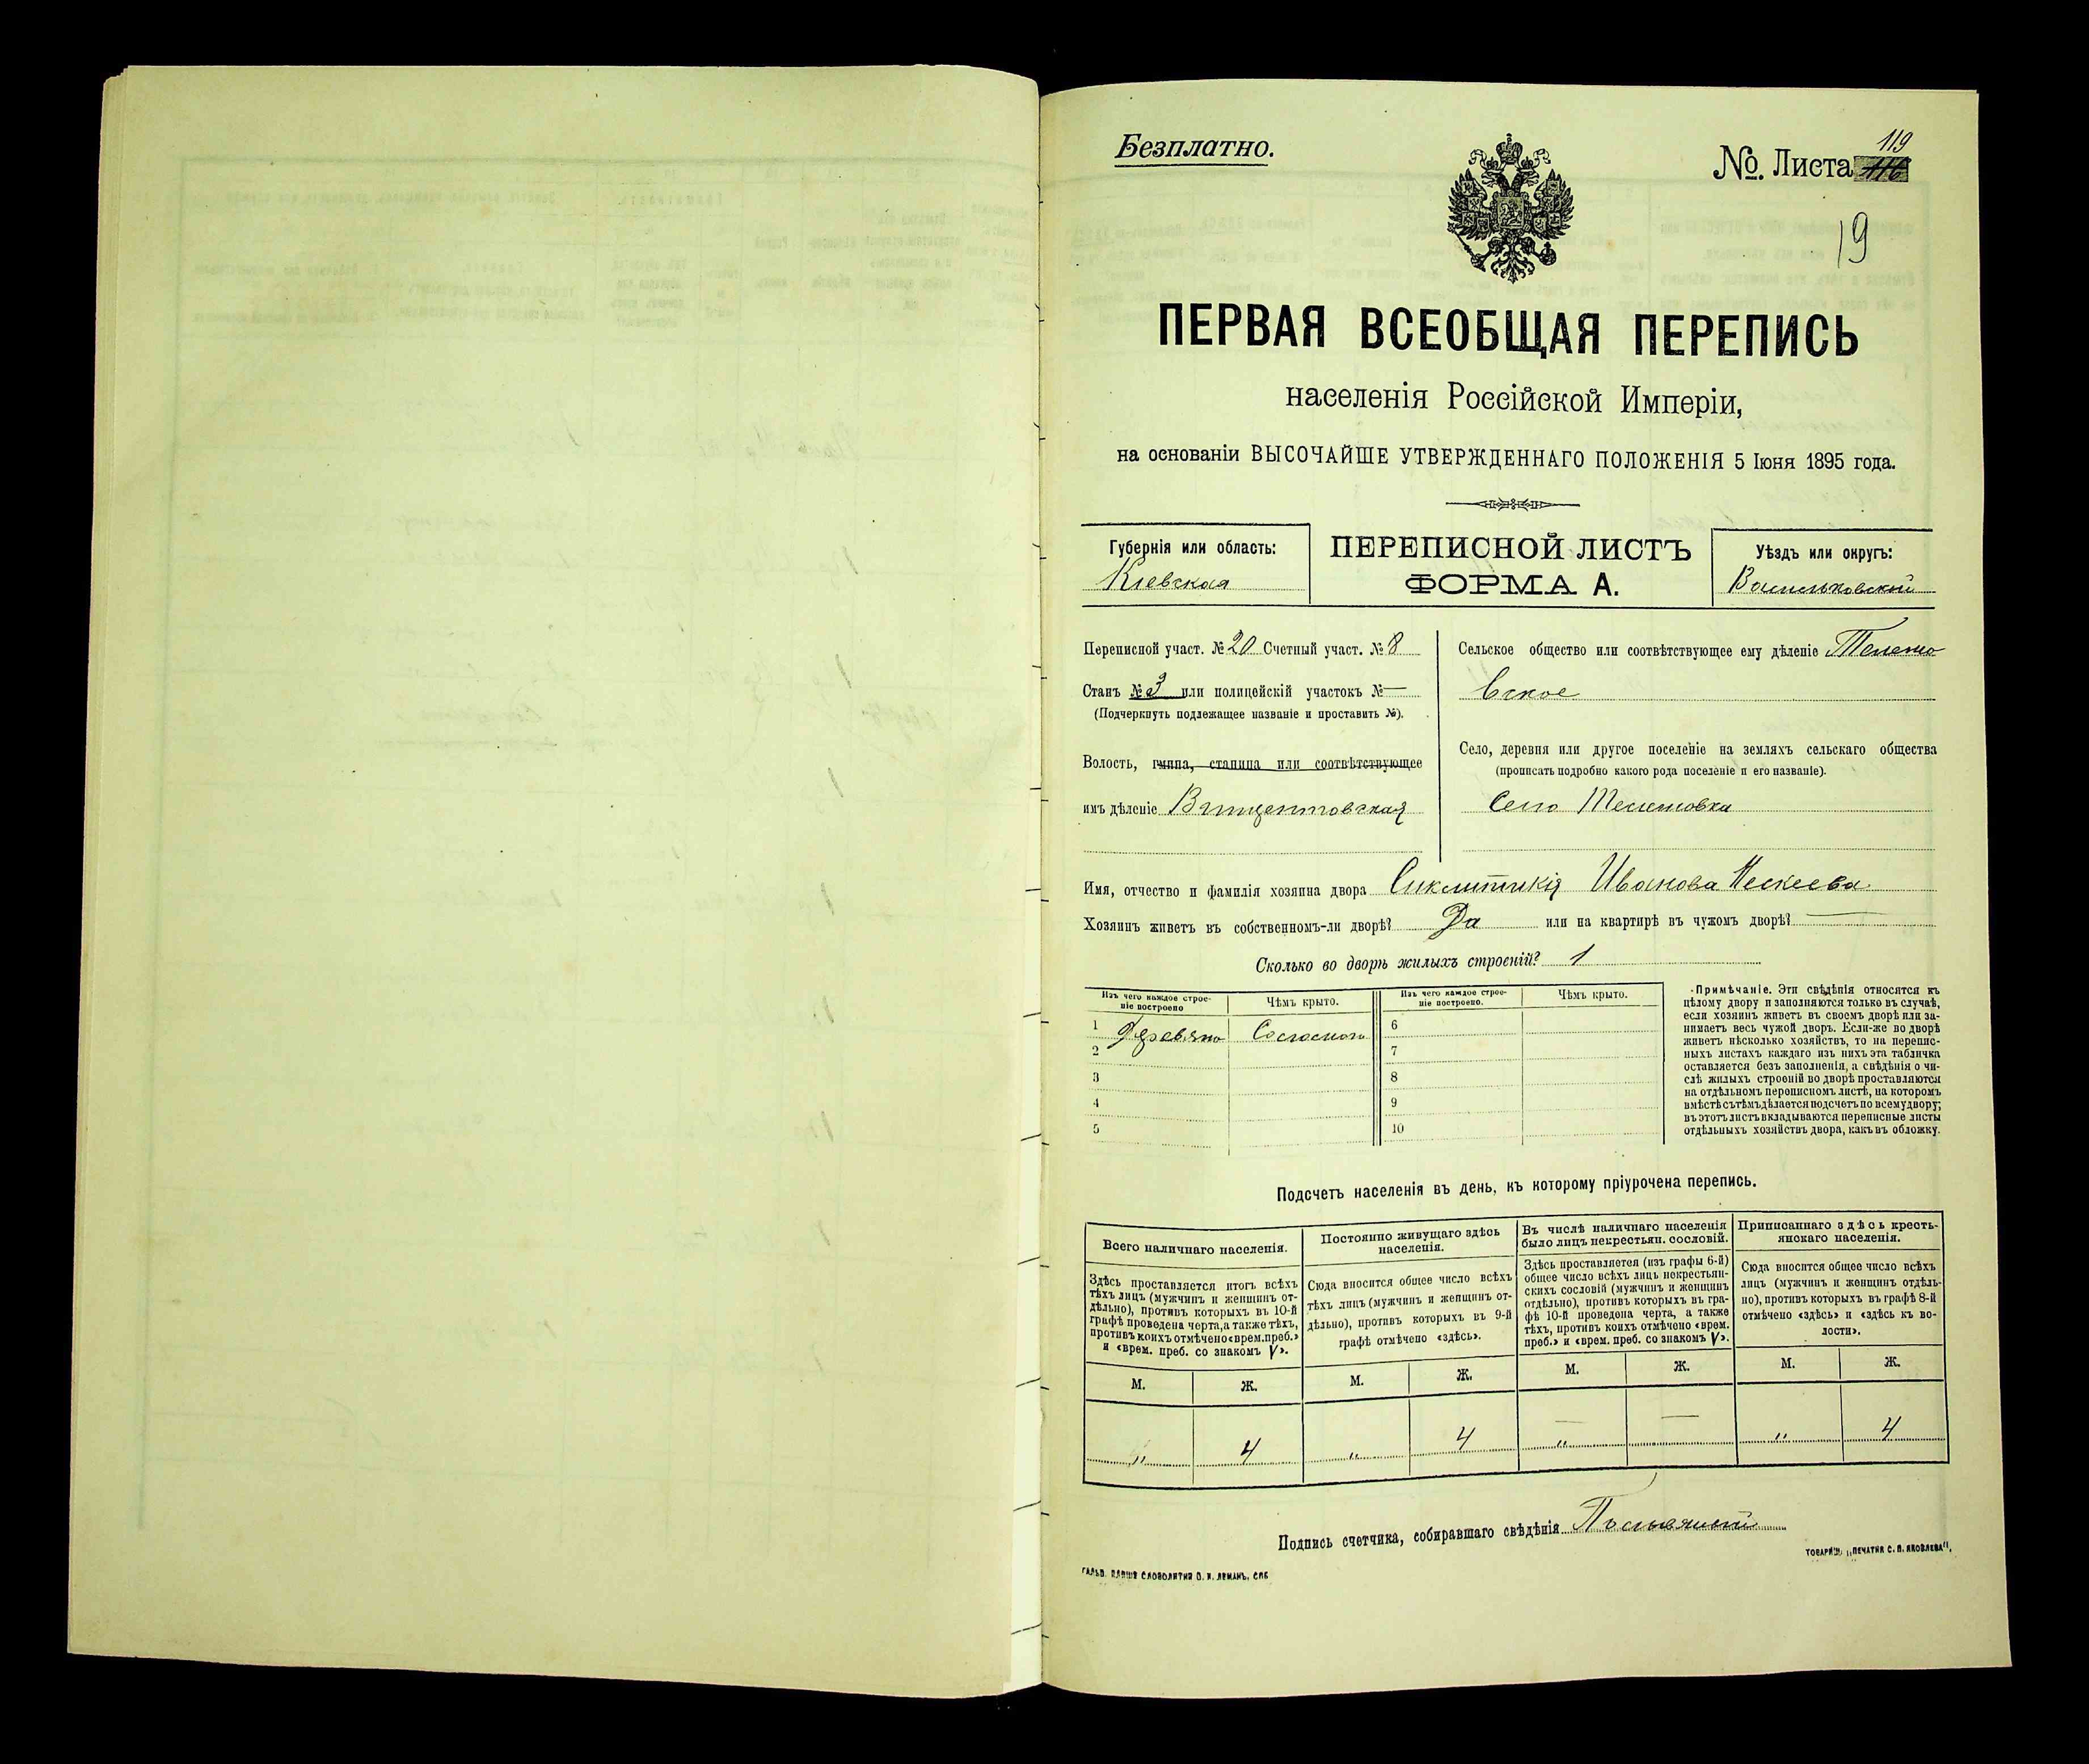 Безплатно.
№. Листа 119
19
ПЕРВАЯ ВСЕОБЩАЯ ПЕРЕПИСЬ
населенія Россійской Имперіи,
на основаніи ВЫСОЧАЙШЕ УТВЕРЖДЕННАГО ПОЛОЖЕНІЯ 5 Іюня 1895 года.
Губернія или область:
Кіевская
ПЕРЕПИСНОЙ ЛИСТЪ
ФОРМА А.
Уѣздъ или округъ:
Васильковскій
Переписной участ. № 20 Счетный участ. № 8
Станъ № 3 или полицейскій участокъ № —
(Подчеркнуть подлежащее названіе и проставить №).
Волость, гмина, станица или соотвѣтствующее
имъ дѣленіе Винцентовская
Сельское общество или соотвѣтствующее ему дѣленіе
вское
Село, деревня или другое поселеніе на земляхъ сельскаго общества
(прописать подробно какого рода поселеніе и его названіе).
Село
Имя, отчество и фамилія хозяина двора Синклитикія Иванова
Хозяинъ живетъ въ собственномъ-ли дворѣ? Да или на квартирѣ въ чужомъ дворѣ? —
Сколько во дворѣ жилыхъ строеній? 1
Изъ чего каждое строе-
ніе построено
Чѣмъ крыто.
Изъ чего каждое строе-
ніе построено.
Чѣмъ крыто.
1 Деревяно Соломою
2
3
4
5
6
7
8
9
10
Примѣчаніе. Эти свѣдѣнія относятся къ
цѣлому двору и заполняются только въ случаѣ,
если хозяинъ живетъ въ своемъ дворѣ или за-
нимаетъ весь чужой дворъ. Если-же во дворѣ
живетъ нѣсколько хозяйствъ, то на перепис-
ныхъ листахъ каждаго изъ нихъ эта табличка
оставляется безъ заполненія, а свѣдѣнія о чи-
слѣ жилыхъ строеній во дворѣ проставляются
на отдѣльномъ переписномъ листѣ, на которомъ
вмѣстѣ съ тѣмъ дѣлается подсчетъ по всему двору;
въ этотъ листъ вкладываются переписные листы
отдѣльныхъ хозяйствъ двора, какъ въ обложку.
Подсчетъ населенія въ день, къ которому пріурочена перепись.
Всего наличнаго населенія.
Здѣсь проставляется итогъ всѣхъ
тѣхъ лицъ (мужчинъ и женщинъ от-
дѣльно), противъ которыхъ въ 10-й
графѣ проведена черта, а также тѣхъ,
противъ коихъ отмѣчено «врем. преб.»
и «врем. преб. со знакомъ V».
М. Ж.
„ 4
Постоянно живущаго здѣсь
населенія.
Сюда вносится общее число всѣхъ
тѣхъ лицъ (мужчинъ и женщинъ от-
дѣльно), противъ которыхъ въ 9-й
графѣ отмѣчено «здѣсь».
М. Ж.
„ 4
Въ числѣ наличнаго населенія
было лицъ некрестьян. сословій.
Здѣсь проставляется (изъ графы 6-й)
общее число всѣхъ лицъ некрестьян-
скихъ сословій (мужчинъ и женщинъ
отдѣльно), противъ которыхъ въ гра-
фѣ 10-й проведена черта, а также
тѣхъ, противъ коихъ отмѣчено «врем.
преб.» и «врем. преб. со знакомъ V».
М. Ж.
— —
„
Приписаннаго здѣсь кресть-
янскаго населенія.
Сюда вносится общее число всѣхъ
лицъ (мужчинъ и женщинъ отдѣль-
но), противъ которыхъ въ графѣ 8-й
отмѣчено «здѣсь» и «здѣсь къ во-
лости».
М. Ж.
„ 4
Подпись счетчика, собиравшаго свѣдѣнія
ТОВАРИЩ. „ПЕЧАТНЯ С. П. ЯКОВЛЕВА".
ГАЛЬВ. КЛИШЕ СЛОВОЛИТНИ О. И. ЛЕМАНЪ, СПБ